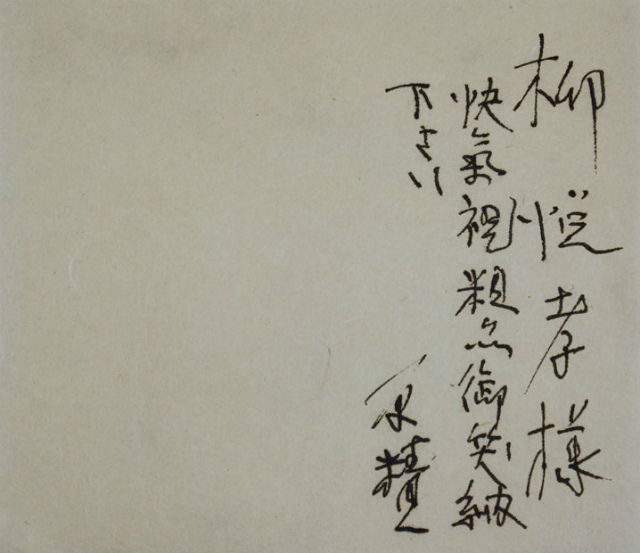 柳悦孝様
快氣祝粗品御笑納
下さい